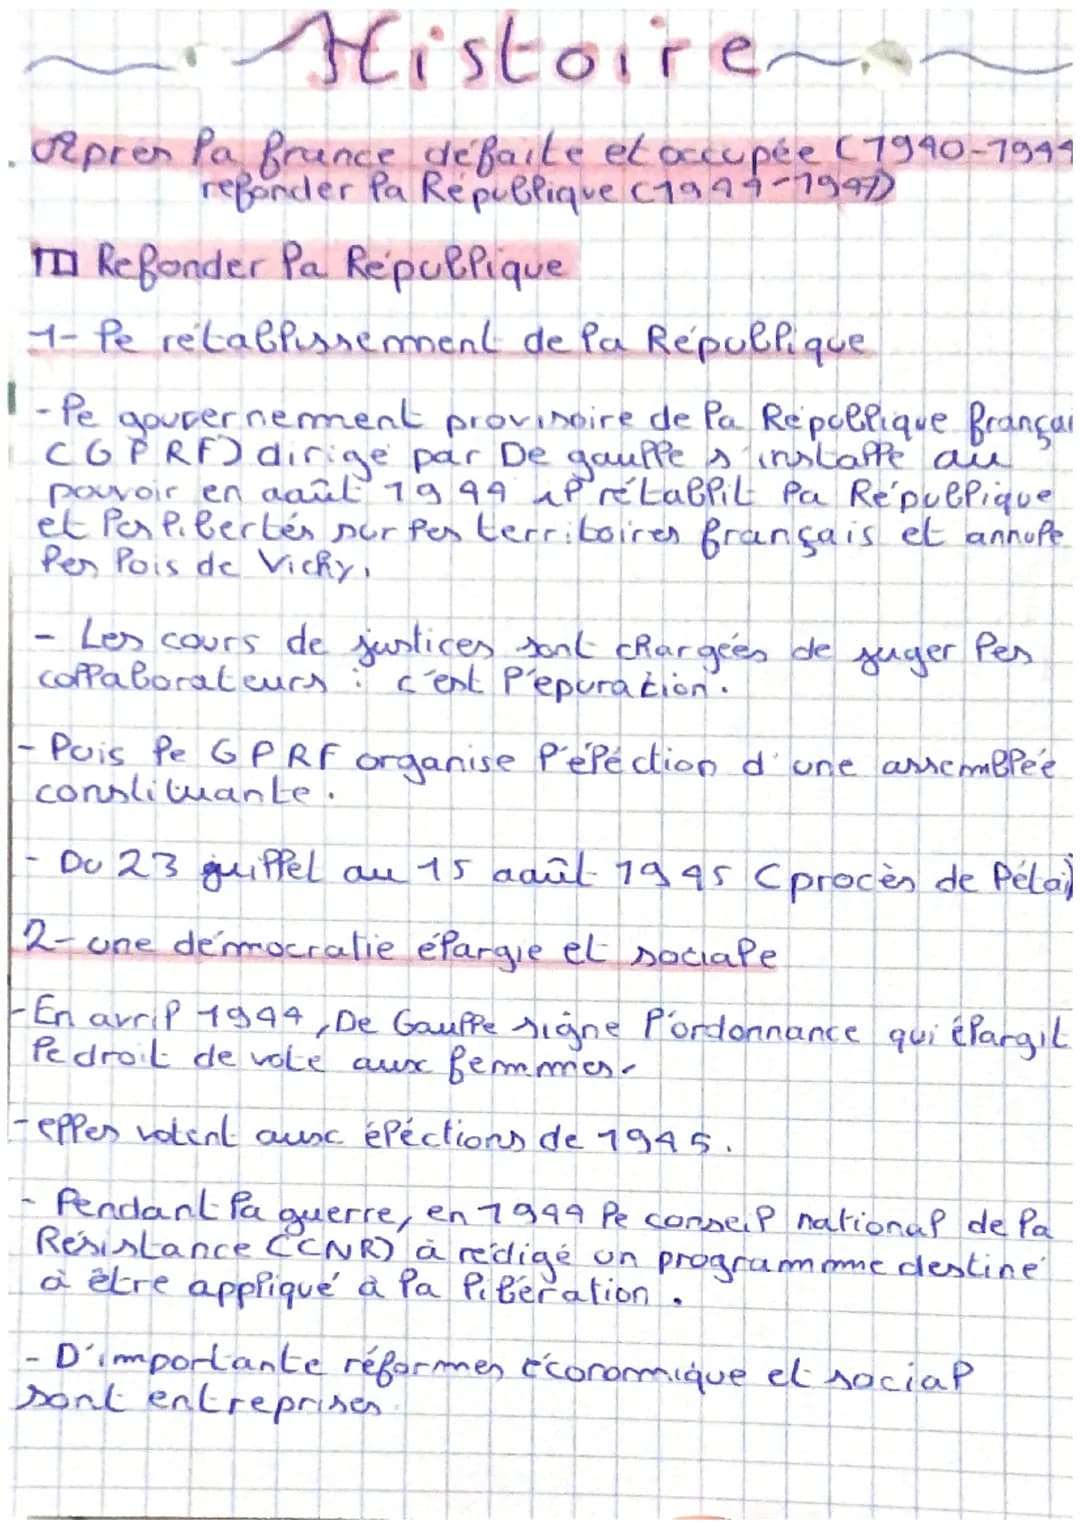 Histoire
Après la france défaite et occupée (1940-1944
refonder la République (1944-1947)
III Refonder la République
1- le rétablissement de la République
- le gouvernement provisoire de la République françai
(GPRF) dirigé par De gaulle s'installe au
pouvoir en août 1944 il rétablit la République
et les libertés sur les territoires français et annule
les lois de Vichy.
- Les cours de justices sont chargées de juger les
collaborateurs : c'est l'épuration.
- Puis le GPRF organise l'éléction d'une assemblée
constituante.
- Du 23 juillet au 15 août 1945 (procès de Pétain)
2- une démocratie élargie et sociale
- En avril 1944, De Gaulle signe l'ordonnance qui élargit
le droit de vote aux femmes.
- elles votent aux éléctions de 1945.
- Pendant la guerre, en 1944 le conseil national de la
Résistance (CNR) à rédigé un programme destiné
à être appliqué à la libération.
- D'importante réformes économique et social
sont entreprises